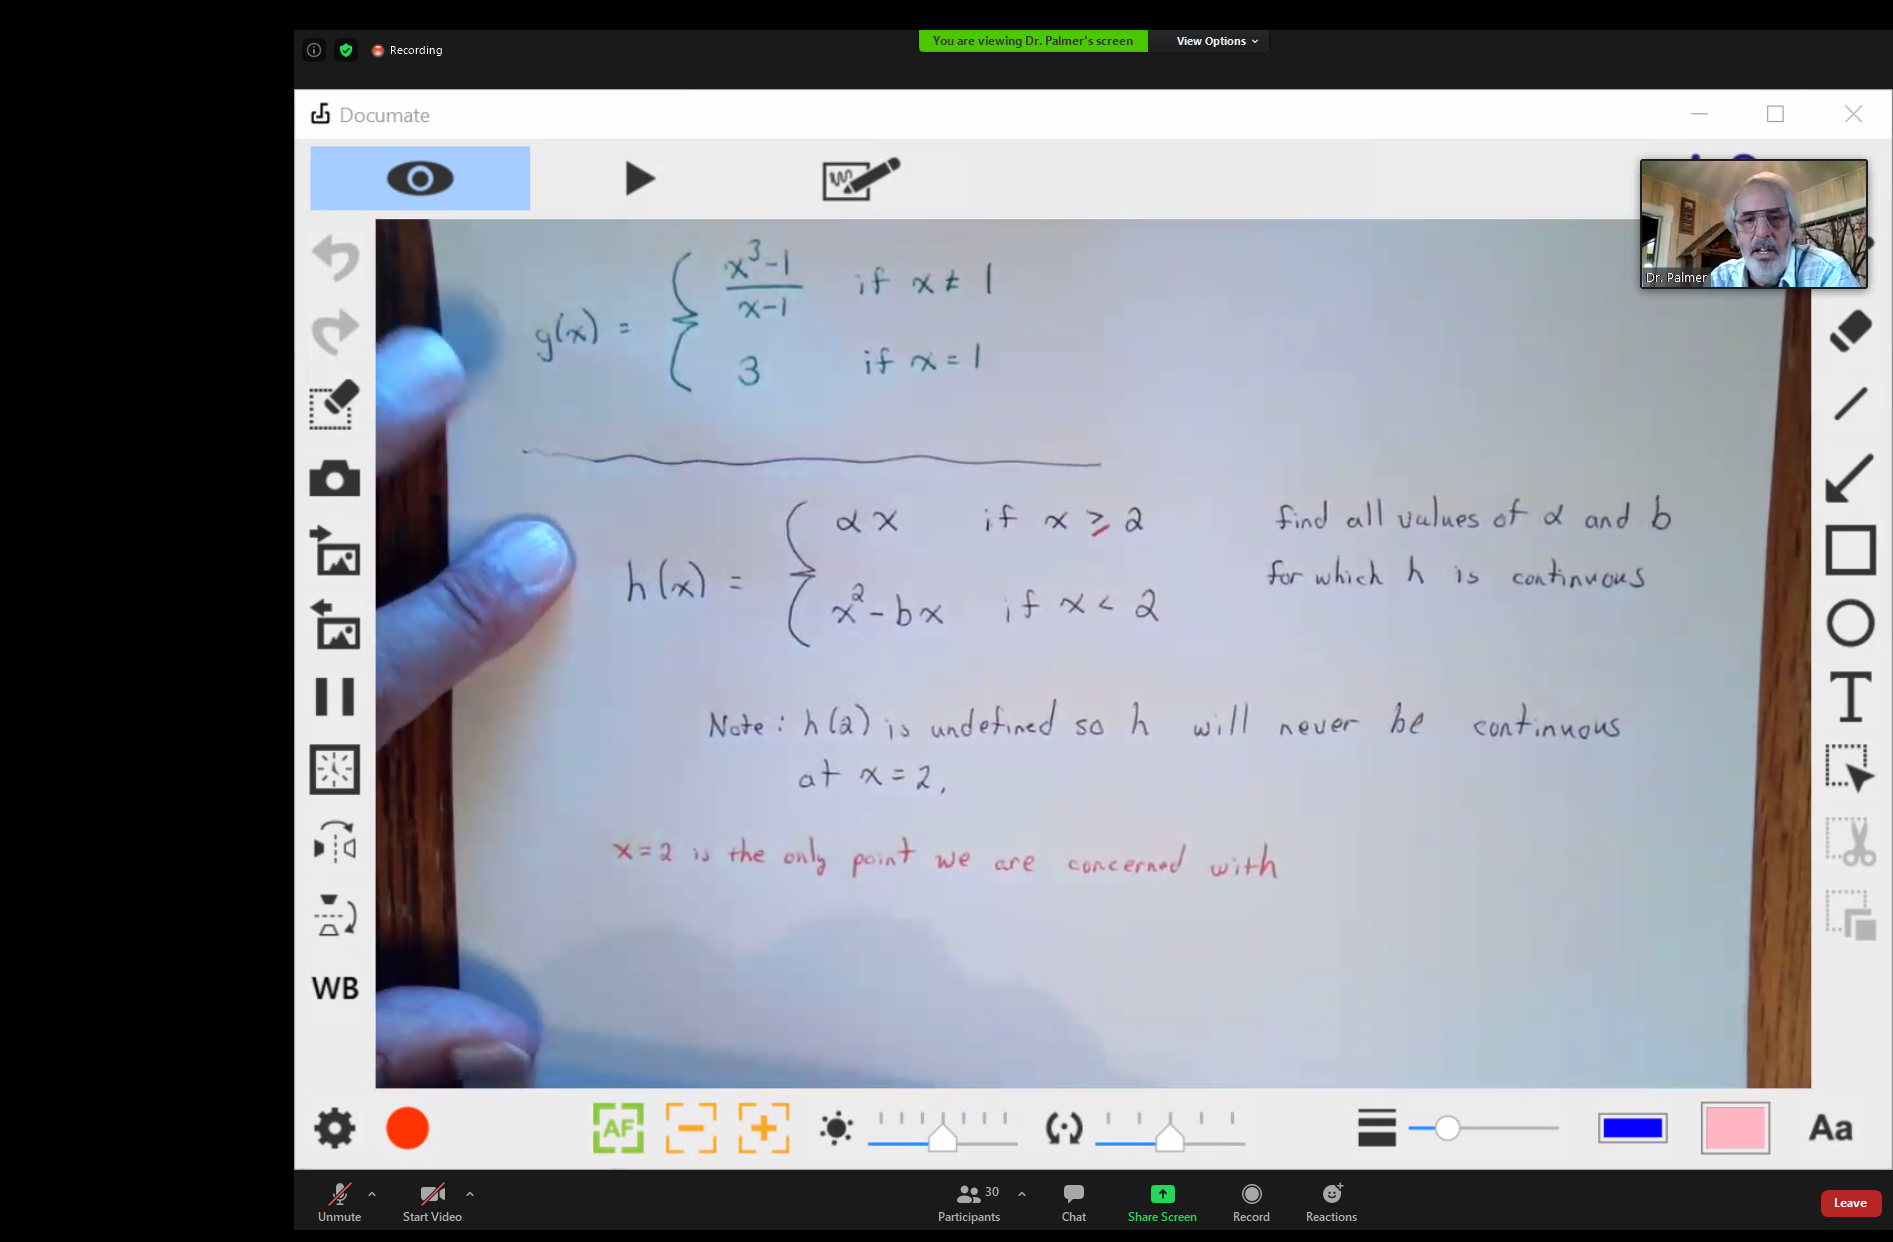 Recording
You are viewing Dr. Palmer's screen View Options
Documate
Dr. Palmer
g(x) = { x³-1 / x-1 if x ≠ 1
3 if x = 1
h(x) = { αx if x ≥ 2
x² - bx if x < 2
find all values of α and b
for which h is continuous
Note: h(2) is undefined so h will never be continuous
at x = 2,
x = 2 is the only point we are concerned with
T
WB
AF
Aa
Unmute
Start Video
Participants 30
Chat
Share Screen
Record
Reactions
Leave